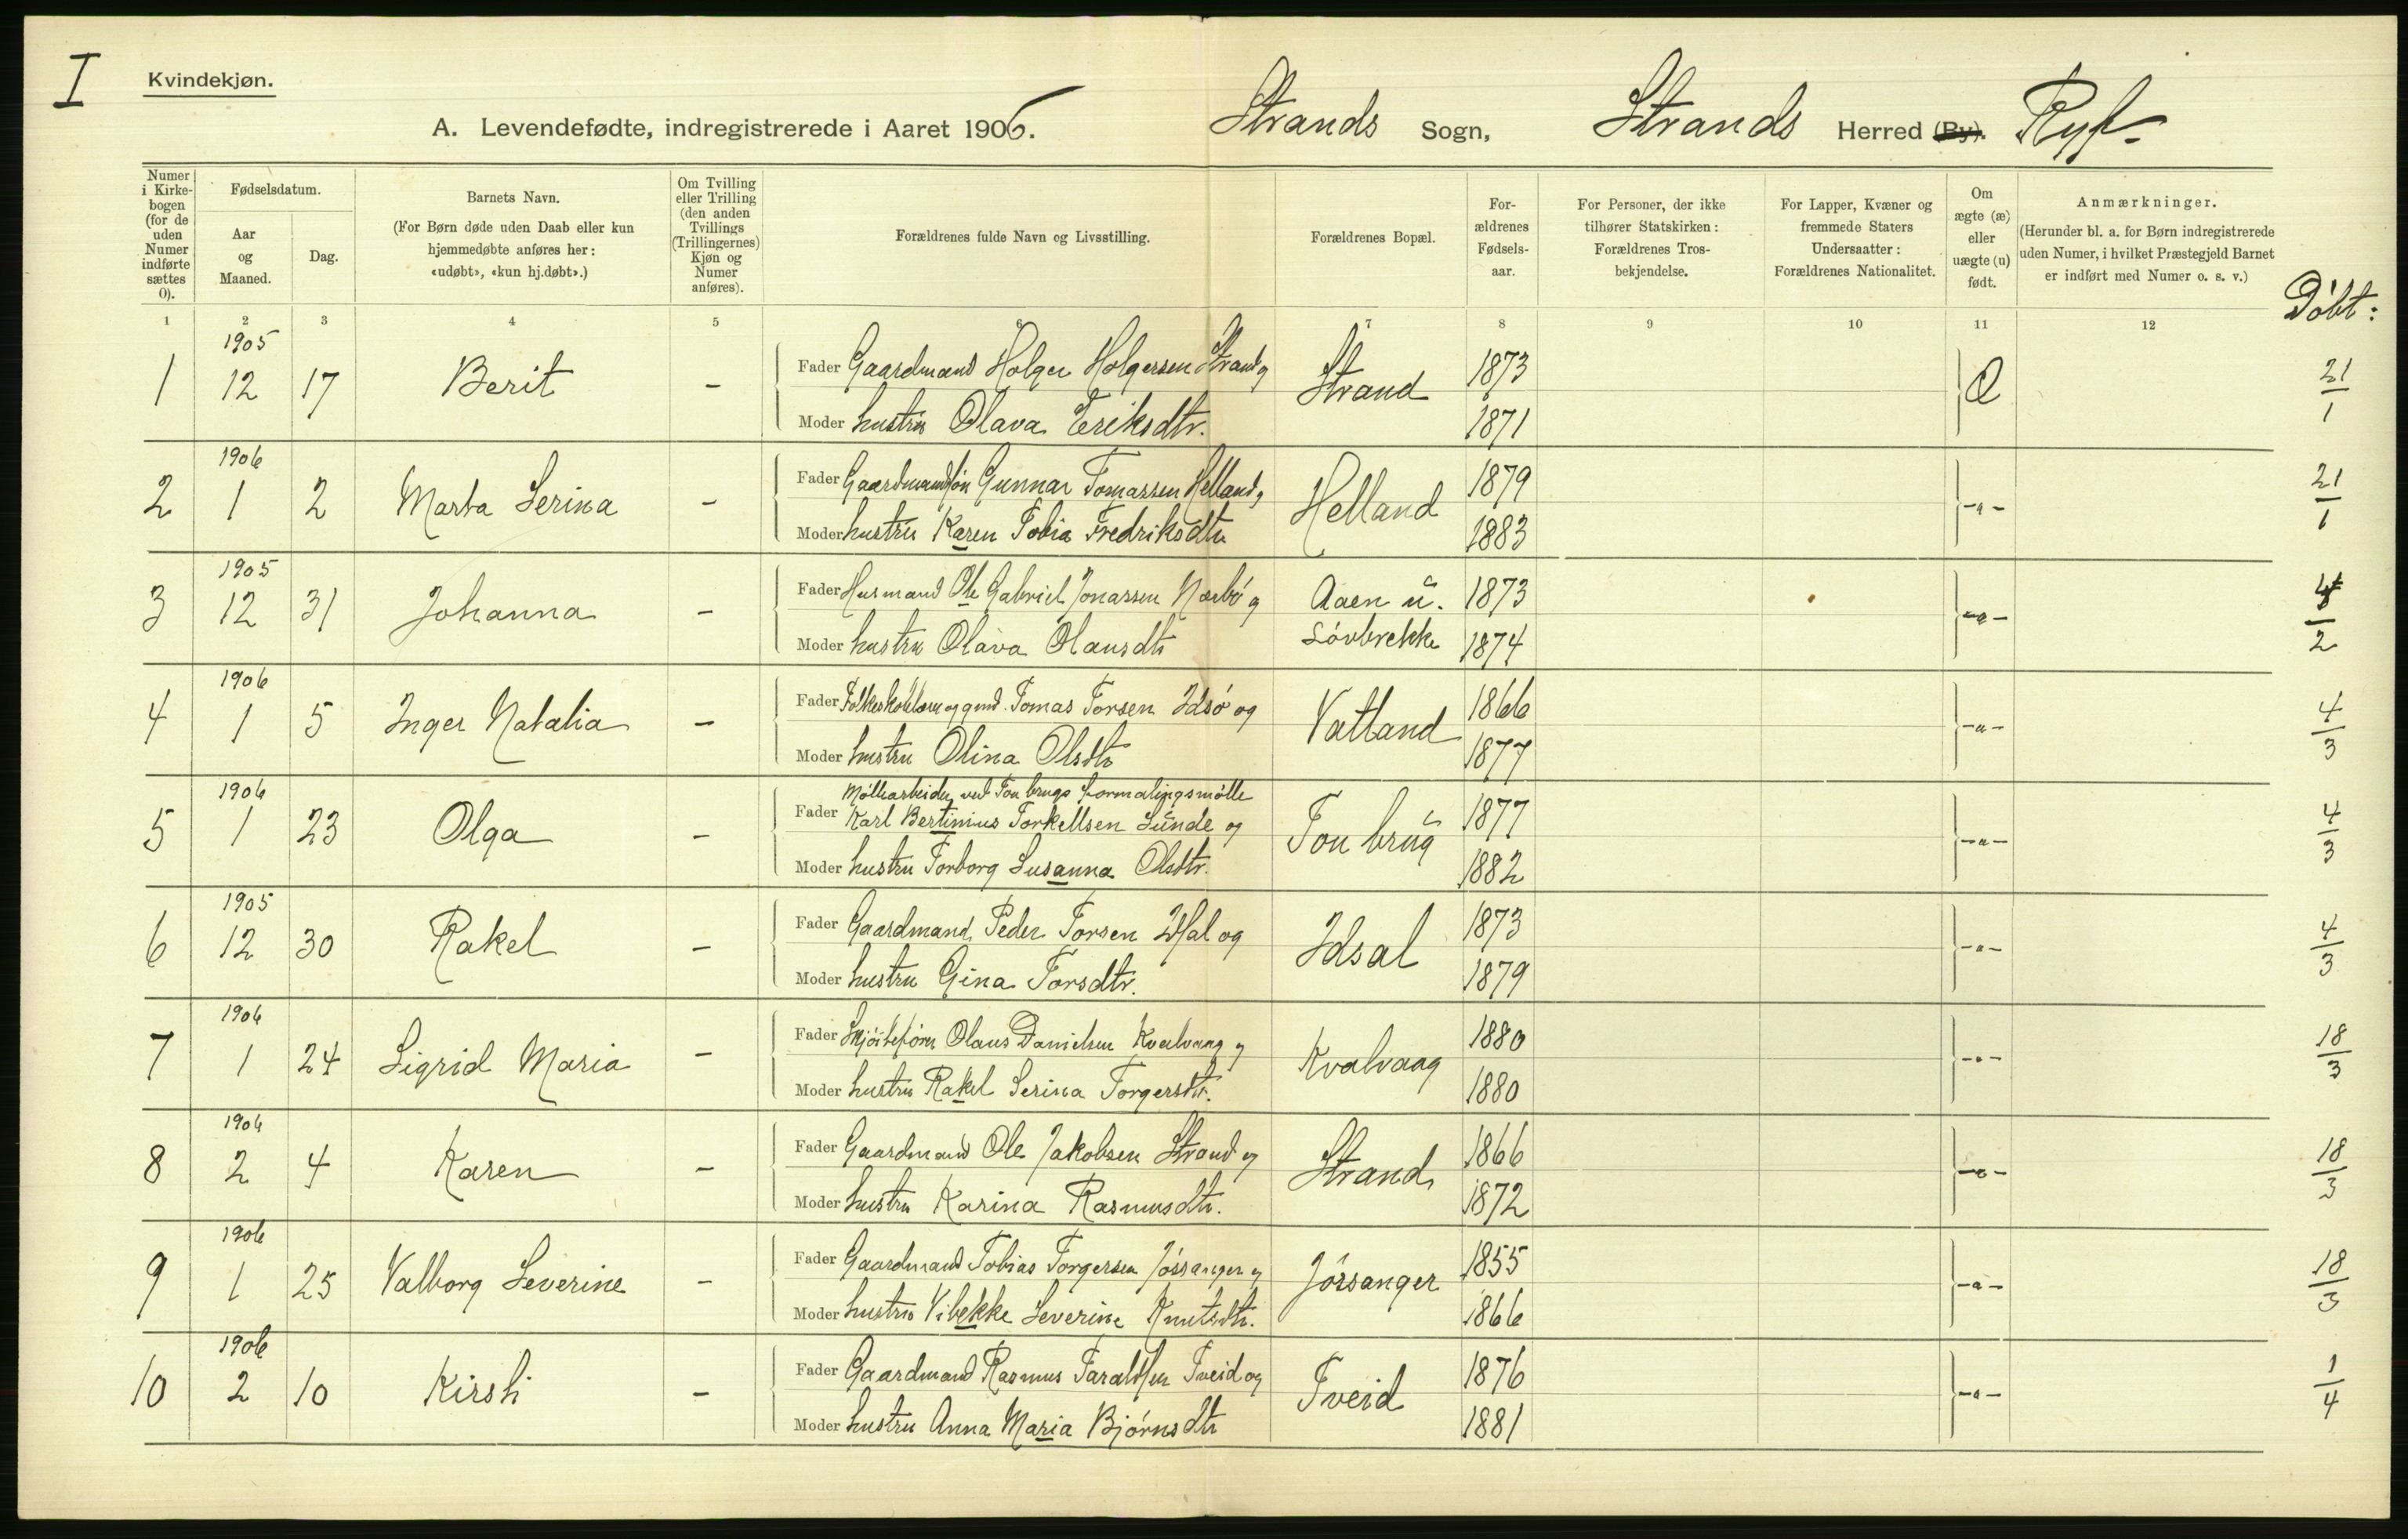 I
Kvindekjøn.
A. Levendefødte, indregistrerede i Aaret 1906. Strands Sogn, Strands Herred (By). Ryf-
Numer i Kirkebogen (for de uden Numer indførte sættes 0).
Fødselsdatum.
Aar og Maaned.
Dag.
Barnets Navn.
(For Børn døde uden Daab eller kun hjemmedøbte anføres her: «udøbt», «kun hj.døbt».)
Om Tvilling eller Trilling (den anden Tvillings (Trillingernes) Kjøn og Numer anføres).
Forældrenes fulde Navn og Livsstilling.
Forældrenes Bopæl.
Forældrenes Fødselsaar.
For Personer, der ikke tilhører Statskirken: Forældrenes Trosbekjendelse.
For Lapper, Kvæner og fremmede Staters Undersaatter: Forældrenes Nationalitet.
Om ægte (æ) eller uægte (u) født.
Anmærkninger.
(Herunder bl. a. for Børn indregistrerede uden Numer, i hvilket Præstegjeld Barnet er indført med Numer o. s. v.)
Døbt:
1 2 3 4 5 6 7 8 9 10 11 12
1 1905 12 17 Berit - Fader Gaardmand Holger Holgersen Strand og Strand 1873 21/1
Moder hustru Olava Eriksdtr. 1871
2 1906 1 2 Marta Serina - Fader Gaardmandsøn Gunnar Tomassen Helland og Helland 1879 -"- 21/1
Moder hustru Karen Tobia Fredriksdtr 1883
3 1905 12 31 Johanna - Fader Husmand Ole Gabriel Jonassen Nærbø og Aaen u. 1873 -"- 4/2
Moder hustru Olava Olausdtr Løvbrekke 1874
4 1906 1 5 Inger Natalia - Fader Tomas Torsen Idsø og Vatland 1866 -"- 4/3
Moder hustru Olina Olsdtr 1877
5 1906 1 23 Olga - Møllearbeider ved Tou brugs formalingsmølle
Fader Karl Bertinius Torkellsen Lunde og Tou brug 1877 -"- 4/3
Moder hustru Torborg Susanna Olsdtr. 1882
6 1905 12 30 Rakel - Fader Gaardmand Peder Torsen Idsal og Idsal 1873 -"- 4/3
Moder hustru Gina Torsdtr. 1879
7 1906 1 24 Sigrid Maria - Fader Skjøitefører Olaus Danielsen Kvalvaag og Kvalvaag 1880 -"- 18/3
Moder hustru Rakel Serina Torgersdtr. 1880
8 1906 2 4 Karen - Fader Gaardmand Ole Jakobsen Strand og Strand 1866 -"- 18/3
Moder hustru Karina Rasmusdtr. 1872
9 1906 1 25 Valborg Severine - Fader Gaardmand Tobias Torgersen Jøssanger og Jøssanger 1855 -"- 18/3
Moder hustru Vibekke Severine Knutsdtr. 1866
10 1906 2 10 Kirsti - Fader Gaardmand Rasmus Taraldsen Tveid og Tveid 1876 -"- 1/4
Moder hustru Anna Maria Bjørnsdtr 1881